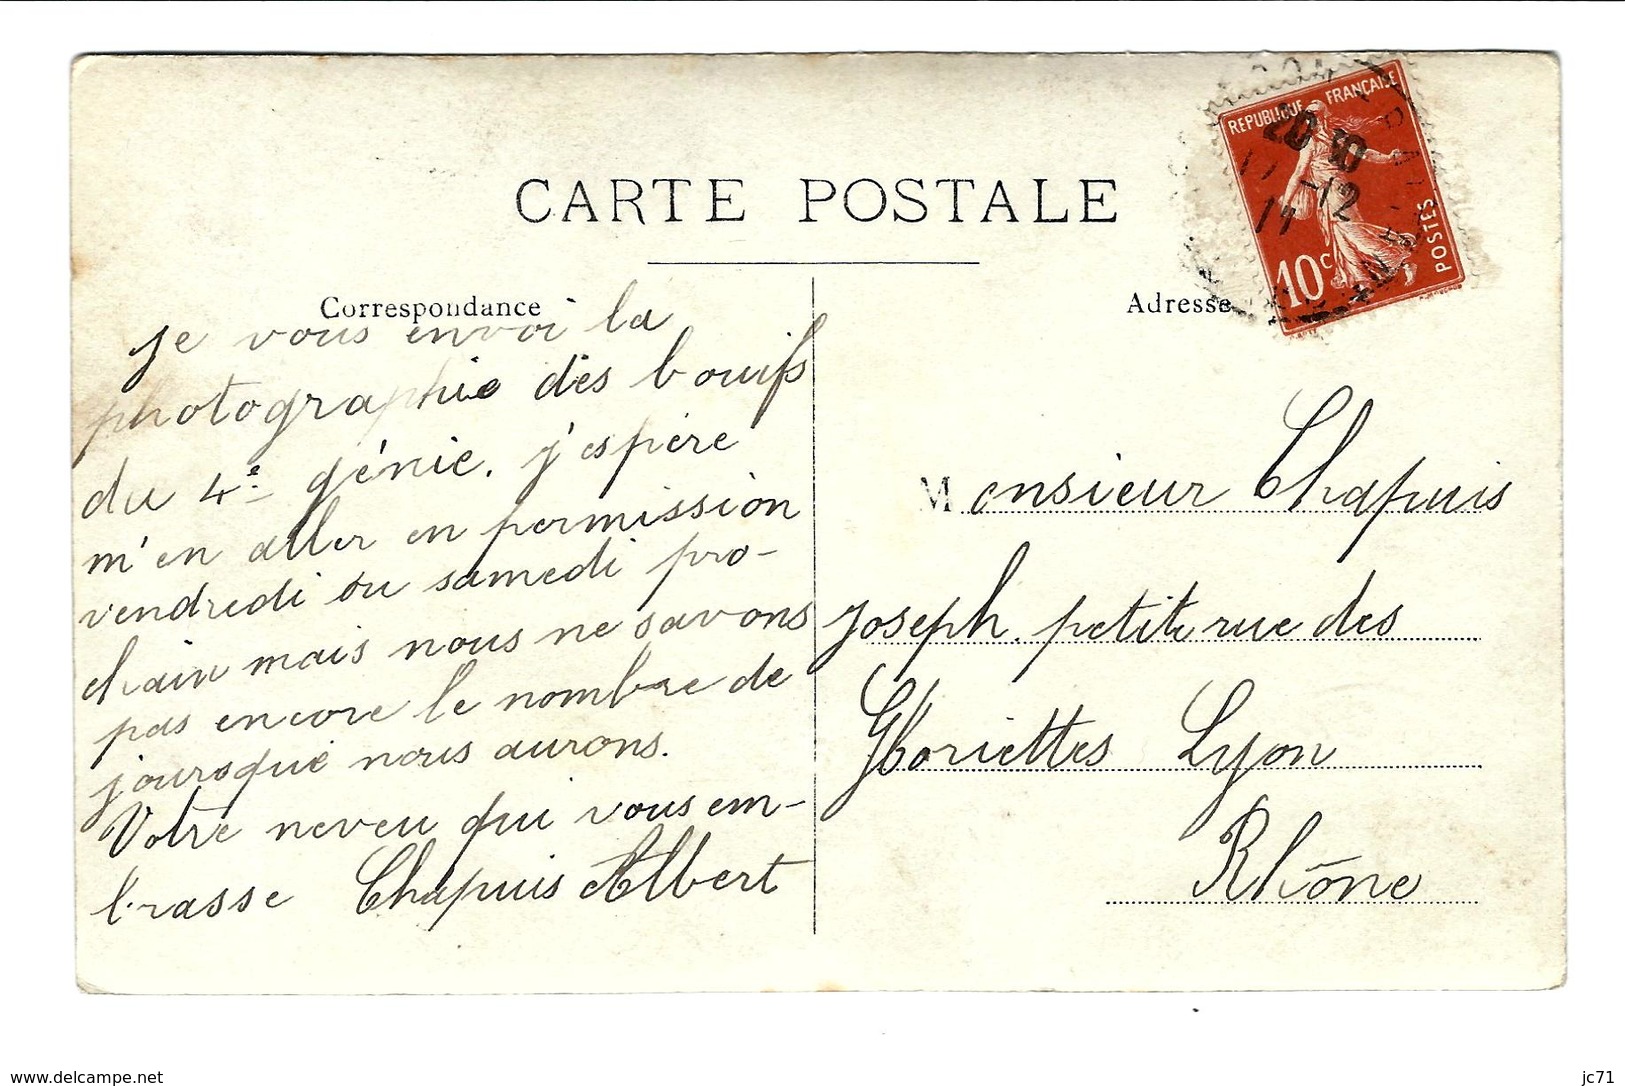 CARTE POSTALE
Correspondance
Adresse
REPUBLIQUE FRANÇAISE
POSTES
10c
20 30
17 -12
14
je vous envoi la
photographie des bouifs
du 4e génie. j'espère
m'en aller en permission
vendredi ou samedi pro-
chain mais nous ne savons
pas encore le nombre de
joursque nous aurons.
Votre neveu qui vous em-
brasse Chapuis Albert
Monsieur Chapuis
Joseph. petite rue des
Gloriettes Lyon
Rhône
www.delcampe.net
jc71